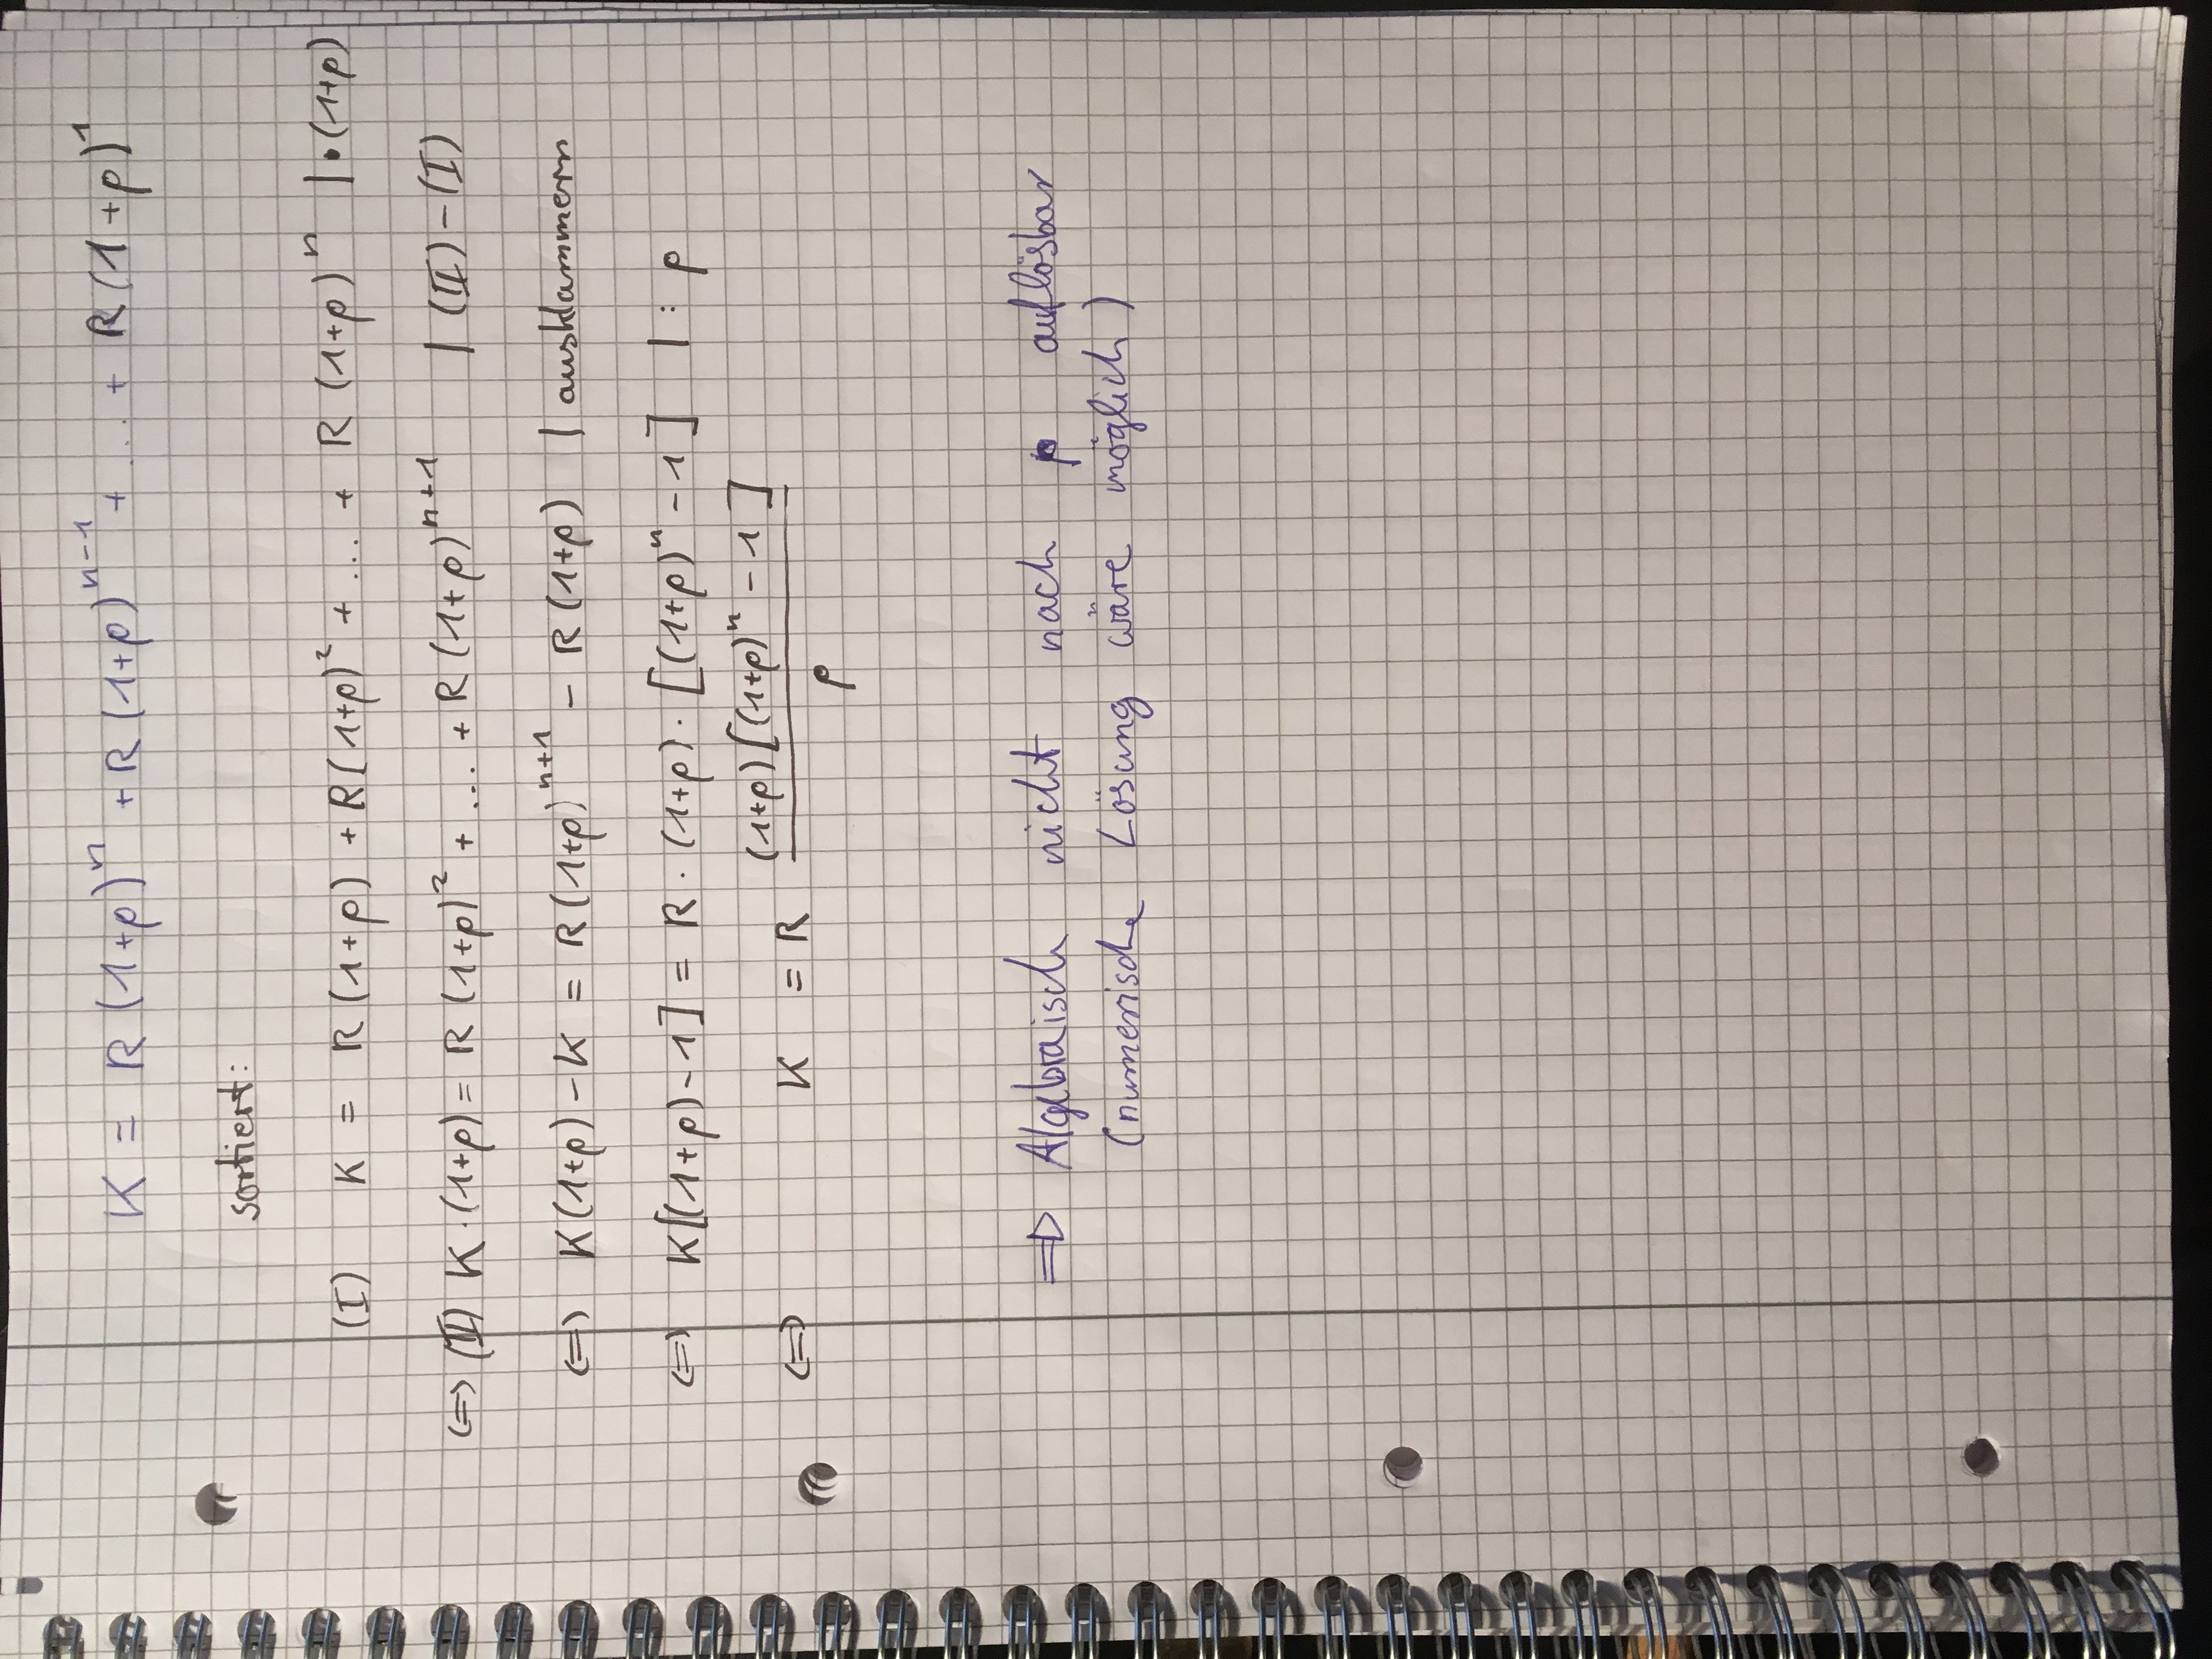 K = R(1+p)^n + R(1+p)^{n-1} + ... + R(1+p)^1
sortiert:
(I) K = R(1+p) + R(1+p)^2 + ... + R(1+p)^n | • (1+p)
<=> (II) K·(1+p) = R(1+p)^2 + ... + R(1+p)^{n+1} | (II) - (I)
<=> K(1+p) - K = R(1+p)^{n+1} - R(1+p) | ausklammern
<=> K[(1+p) - 1] = R · (1+p) · [(1+p)^n - 1] | : p
<=> K = R \frac{(1+p)[(1+p)^n - 1]}{p}
=> Algebraisch nicht nach p auflösbar
(numerische Lösung wäre möglich)